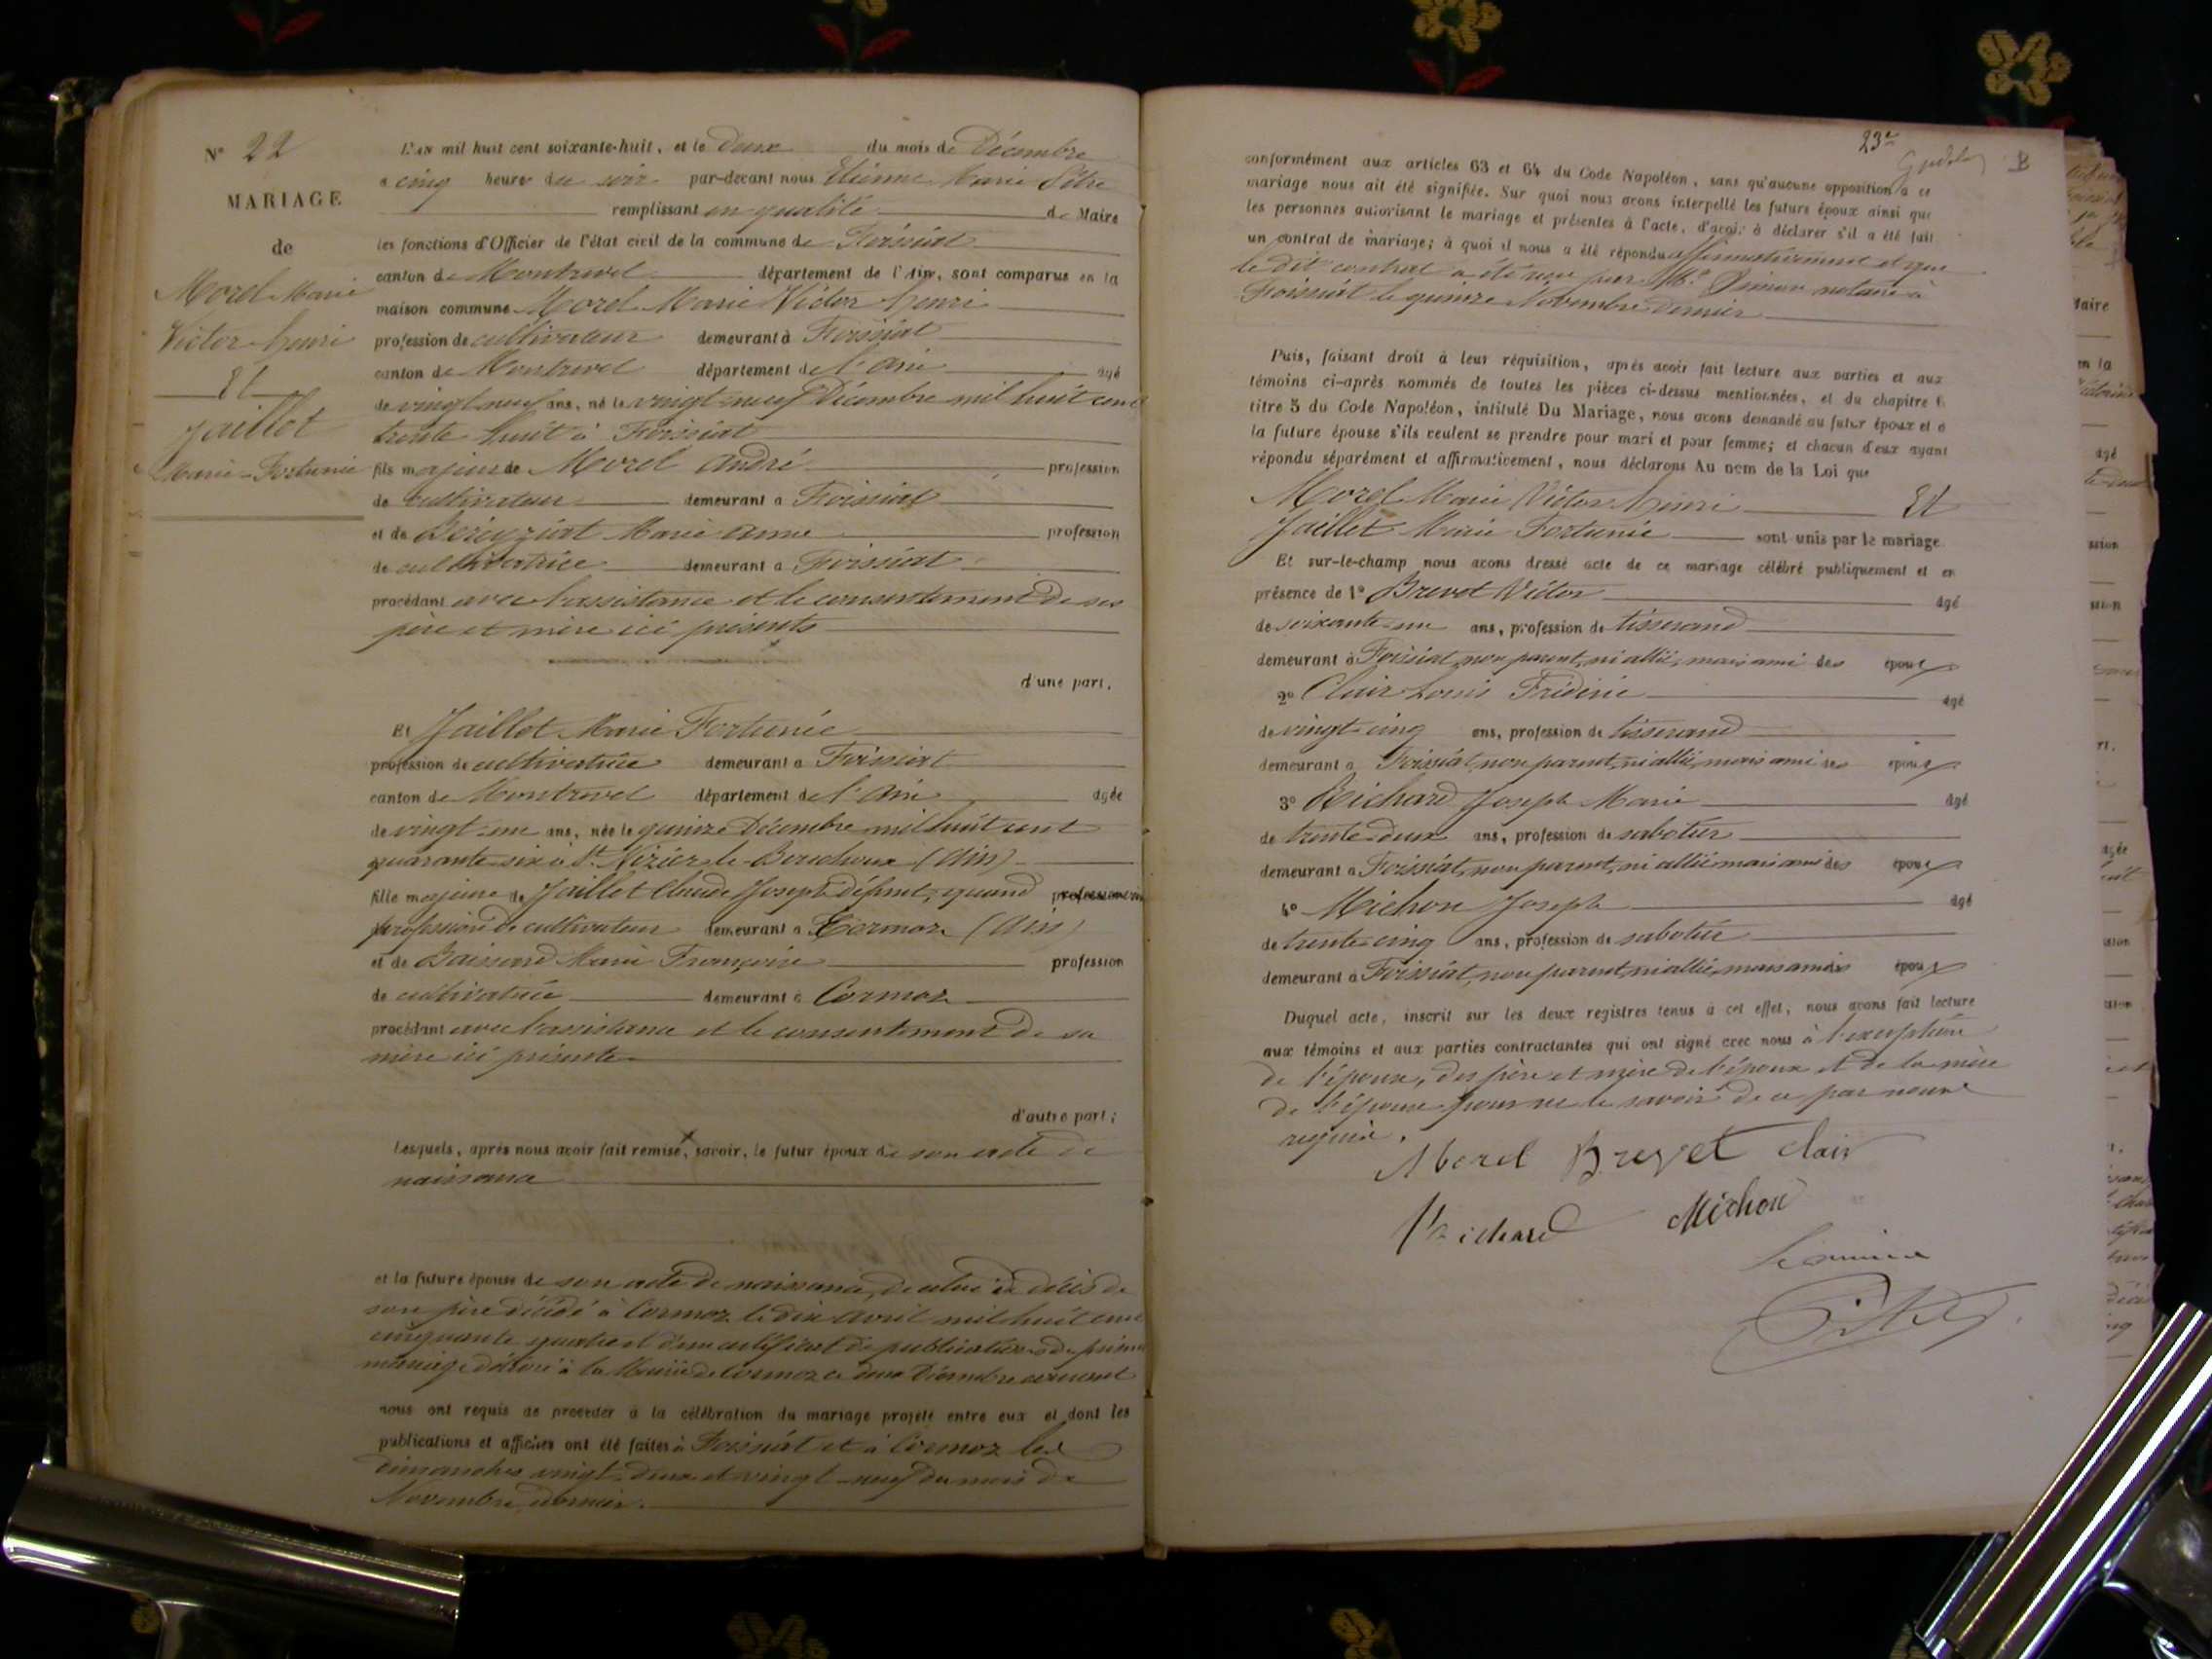 N° 22
MARIAGE
de
Morel Marie
Victor henri
Et
Jaillet
Marie-Fortunée
L'AN mil huit cent soixante-huit, et le deux du mois de Décembre
à cinq heures du soir par-devant nous Etienne Marie Pitre
remplissant en qualité de Maire
les fonctions d'Officier de l'état civil de la commune de Foissiat
canton de Montrevel département de l'Ain, sont comparus en la
maison commune Morel Marie Victor henri
profession de cultivateur demeurant à Foissiat
canton de Montrevel département de l'Ain âgé
de vingt neuf ans, né le vingt-neuf Décembre mil huit cent
trente huit à Foissiat
fils majeur de Morel André profession
de cultivateur demeurant à Foissiat
et de Bereyziat Marie Anne profession
de cultivatrice demeurant à Foissiat
procédant avec l'assistance et le consentement de ses
père et mère ici présents
d'une part,
Et Jaillet Marie Fortunée
profession de cultivatrice demeurant à Foissiat
canton de Montrevel département de l'Ain âgée
de vingt-un ans, née le quinze Décembre mil huit cent
quarante-six à St Nizier-le-Bouchoux (Ain)
fille majeure de Jaillet Claude Joseph défunt, quand profession
profession de cultivateur demeurant à Cormoz (Ain)
et de Boissard Marie Françoise profession
de cultivatrice demeurant à Cormoz
procédant avec l'assistance et le consentement de sa
mère ici présente
d'autre part;
Lesquels, après nous avoir fait remise, savoir, le futur époux de son acte de
naissance
et la future épouse de son acte de naissance, de celui de décès de
son père décédé à Cormoz le dix Avril mil huit cent
cinquante quatre et d'un certificat de publications de
mariage délivré à la Mairie de Cormoz le deux Décembre courant
nous ont requis de procéder à la célébration du mariage projeté entre eux et dont les
publications et affiches ont été faites à Foissiat et à Cormoz les
dimanches vingt-deux et vingt-neuf du mois de
Novembre dernier.
23e
conformément aux articles 63 et 64 du Code Napoléon, sans qu'aucune opposition à ce
mariage nous ait été signifiée. Sur quoi nous avons interpellé les futurs époux ainsi que
les personnes autorisant le mariage et présentes à l'acte, d'avoir à déclarer s'il a été fait
un contrat de mariage; à quoi il nous a été répondu affirmativement et que
le dit contrat a été reçu par Me notaire à
Foissiat le quinze Novembre dernier
Puis, faisant droit à leur réquisition, après avoir fait lecture aux parties et aux
témoins ci-après nommés de toutes les pièces ci-dessus mentionnées, et du chapitre 6
titre 5 du Code Napoléon, intitulé Du Mariage, nous avons demandé au futur époux et à
la future épouse s'ils veulent se prendre pour mari et pour femme; et chacun d'eux ayant
répondu séparément et affirmativement, nous déclarons Au nom de la Loi que
Morel Marie Victor henri Et
Jaillet Marie Fortunée sont unis par le mariage
Et sur-le-champ nous avons dressé acte de ce mariage célébré publiquement et en
présence de 1° Brevet Victor âgé
de soixante-un ans, profession de tisserand
demeurant à Foissiat, non parent, ni allié, mais ami des époux
2° Clair Louis Fréderic âgé
de vingt-cinq ans, profession de tisserand
demeurant à Foissiat, non parent, ni allié, mais ami des époux
3° Richard Joseph Marie âgé
de trente-deux ans, profession de sabotier
demeurant à Foissiat, non parent, ni allié mais ami des époux
4° Michon Joseph âgé
de trente-cinq ans, profession de sabotier
demeurant à Foissiat, non parent, ni allié, mais ami des époux
Duquel acte, inscrit sur les deux registres tenus à cet effet, nous avons fait lecture
aux témoins et aux parties contractantes qui ont signé avec nous à l'exception
de l'épouse, des père et mère de l'époux et de la mère
de l'épouse pour ne le savoir de ce par nous
requis.
Morel Brevet Clair
Richard Michon
Le maire
Pitre